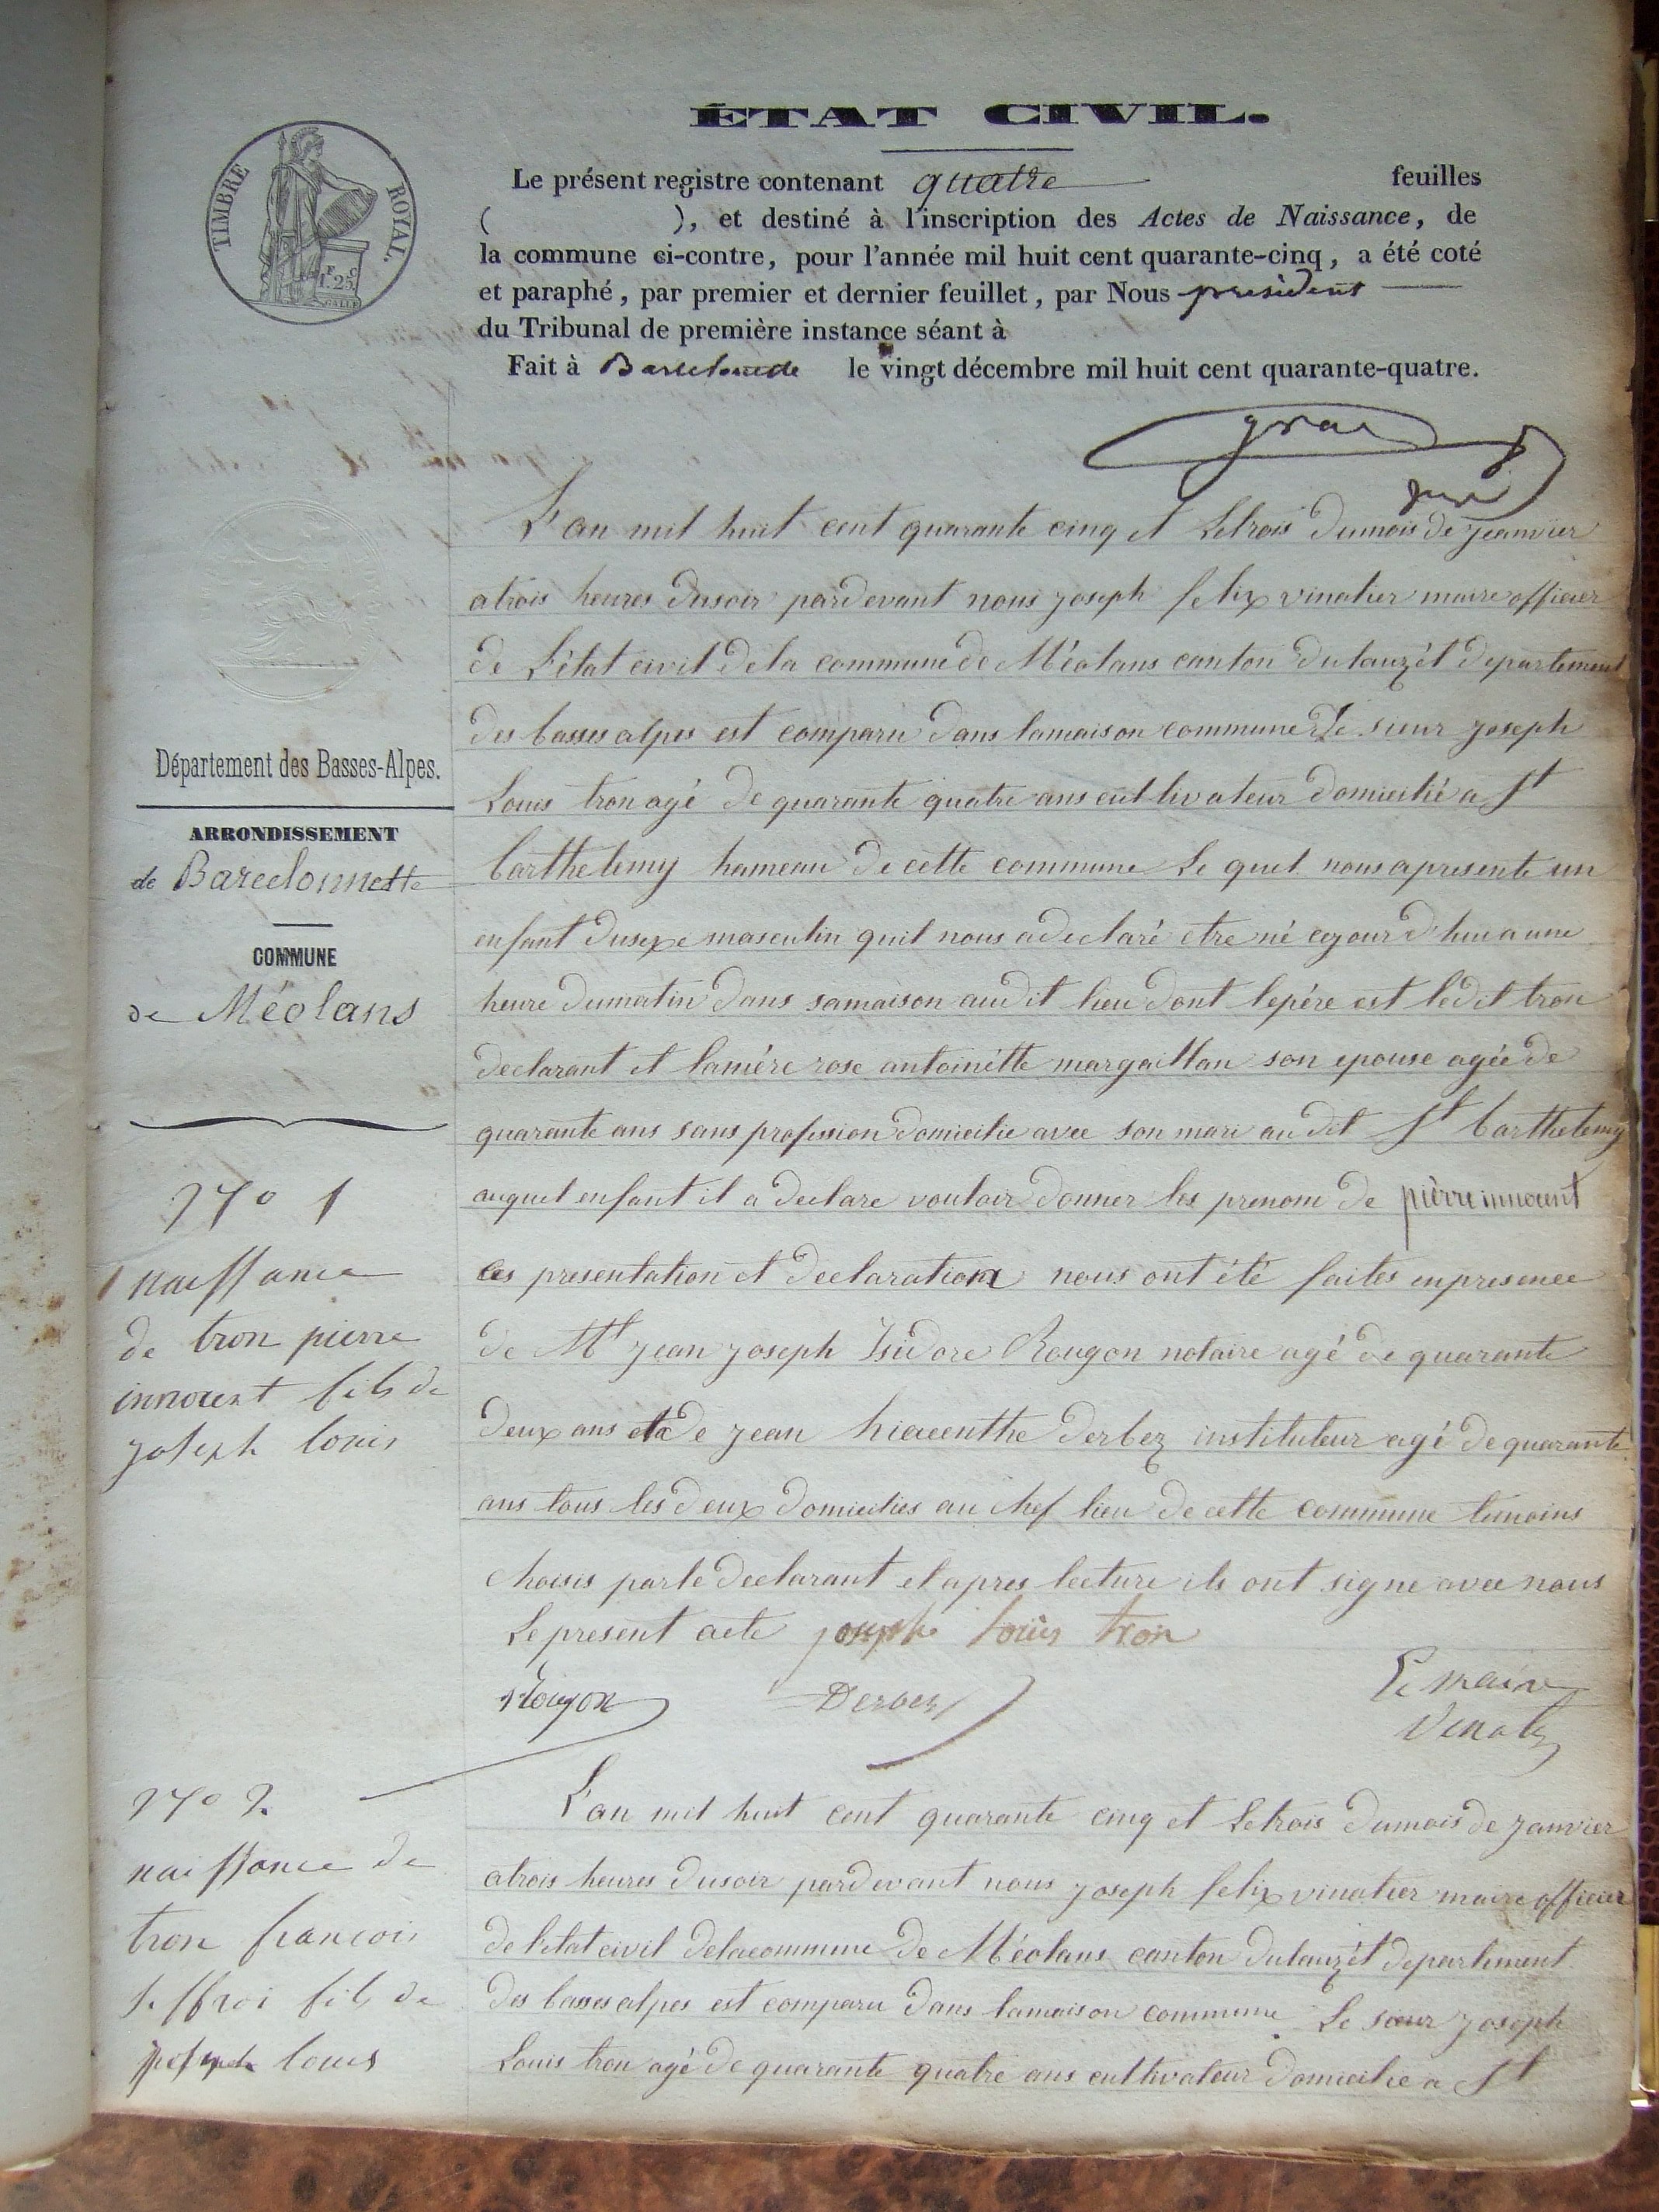 ÉTAT CIVIL.
TIMBRE ROYAL.
1F. 25c
Le présent registre contenant quatre feuilles
( ), et destiné à l'inscription des Actes de Naissance, de
la commune ci-contre, pour l'année mil huit cent quarante-cinq, a été coté
et paraphé, par premier et dernier feuillet, par Nous président
du Tribunal de première instance séant à
Fait à le vingt décembre mil huit cent quarante-quatre.
Département des Basses-Alpes.
ARRONDISSEMENT
de Barcelonnette
COMMUNE
de Méolans
N° 1
naissance
de tron pierre
innocent fils de
joseph louis
L'an mil huit cent quarante cinq et le trois du mois de jeanvier
a trois heures du soir pardevant nous joseph felix vinatier maire officier
de L'état civil de la commune de Méolans canton du lauzét departement
des basses alpes est comparu dans la maison commune Le sieur joseph
Louis tron agé de quarante quatre ans cultivateur domicilié a St
barthelemy hameau de cette commune Le quel nous a presente un
enfant du sexe masculin quil nous a declaré etre né ce jour d'hui a une
heure du matin dans sa maison au dit lieu dont le pére est le dit tron
declarant et la mére rose antoinétte margaillan son epouse agée de
quarante ans sans profession domicilie avec son mari au dit St barthelemy
auquel enfant il a declare vouloir donner les prenom de pièrre innocent
ces presentation et declaration nous ont été faites en presence
de Mr jean joseph Isidore Rougon notaire agé de quarante
deux ans et de jean hiacenthe derbez instituteur agé de quarante
ans tous les deux domicilies au chef lieu de cette commune temoins
choisis par le declarant et apres lecture ils ont signe avec nous
Le present acte joseph louis tron
Rougon Derbez Le maire
N° 2.
naissance de
tron francois
fils de
joseph louis
L'an mil huit cent quarante cinq et le trois du mois de janvier
a trois heures du soir pardevant nous joseph felix vinatier maire officier
de l'etat civil de la commune de Méolans canton du lauzét departement
des basses alpes est comparu dans la maison commune Le sieur joseph
Louis tron agé de quarante quatre ans cultivateur domicilie a St